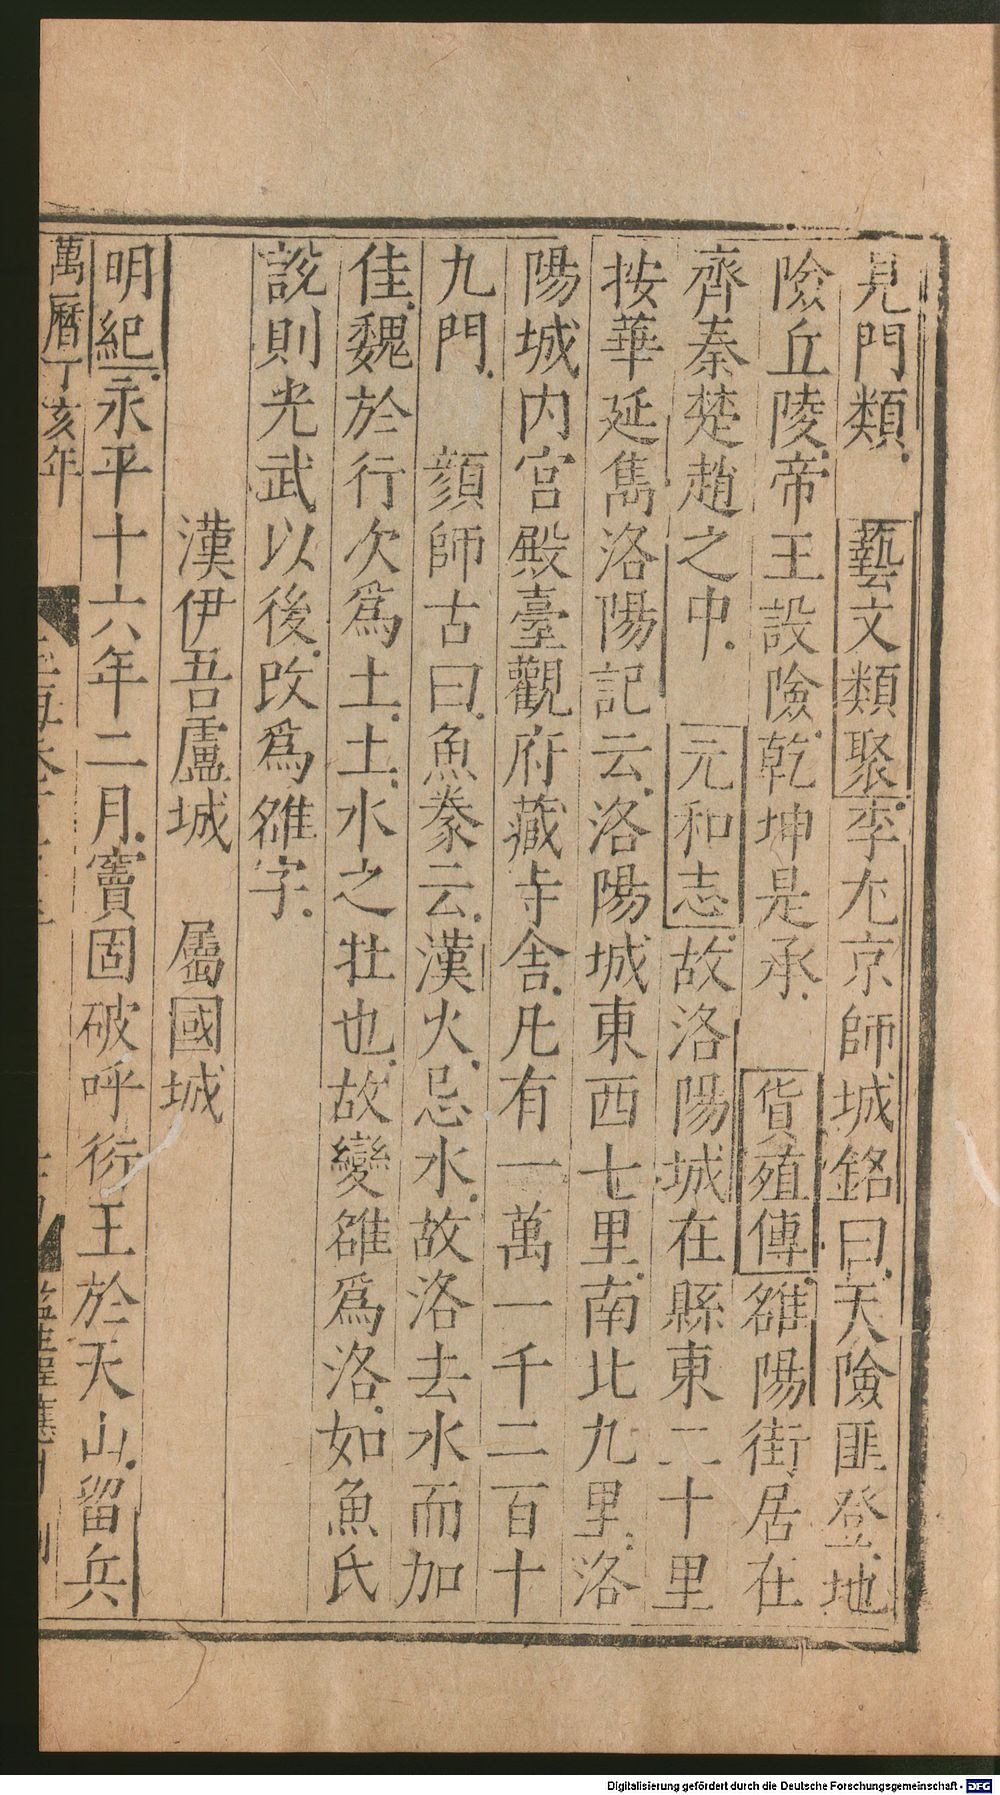 見門類 藝文類聚李尤京師城銘曰天險匪登地
險丘陵帝王設險乾坤是承 貨殖傳雒陽街居在
齊秦楚趙之中 元和志故洛陽城在縣東二十里
按華延雋洛陽記云洛陽城東西七里南北九里洛
陽城内宫殿臺觀府藏寺舍凡有一萬一千二百十
九門 顔師古曰魚豢云漢火忌水故洛去水而加
佳魏於行次爲土土水之牡也故變雒爲洛如魚氏
説則光武以後改爲雒字
漢伊吾盧城 屬國城
明紀永平十六年二月竇固破呼衍王於天山留兵
萬曆丁亥年
Digitalisierung gefördert durch die Deutsche Forschungsgemeinschaft - DFG